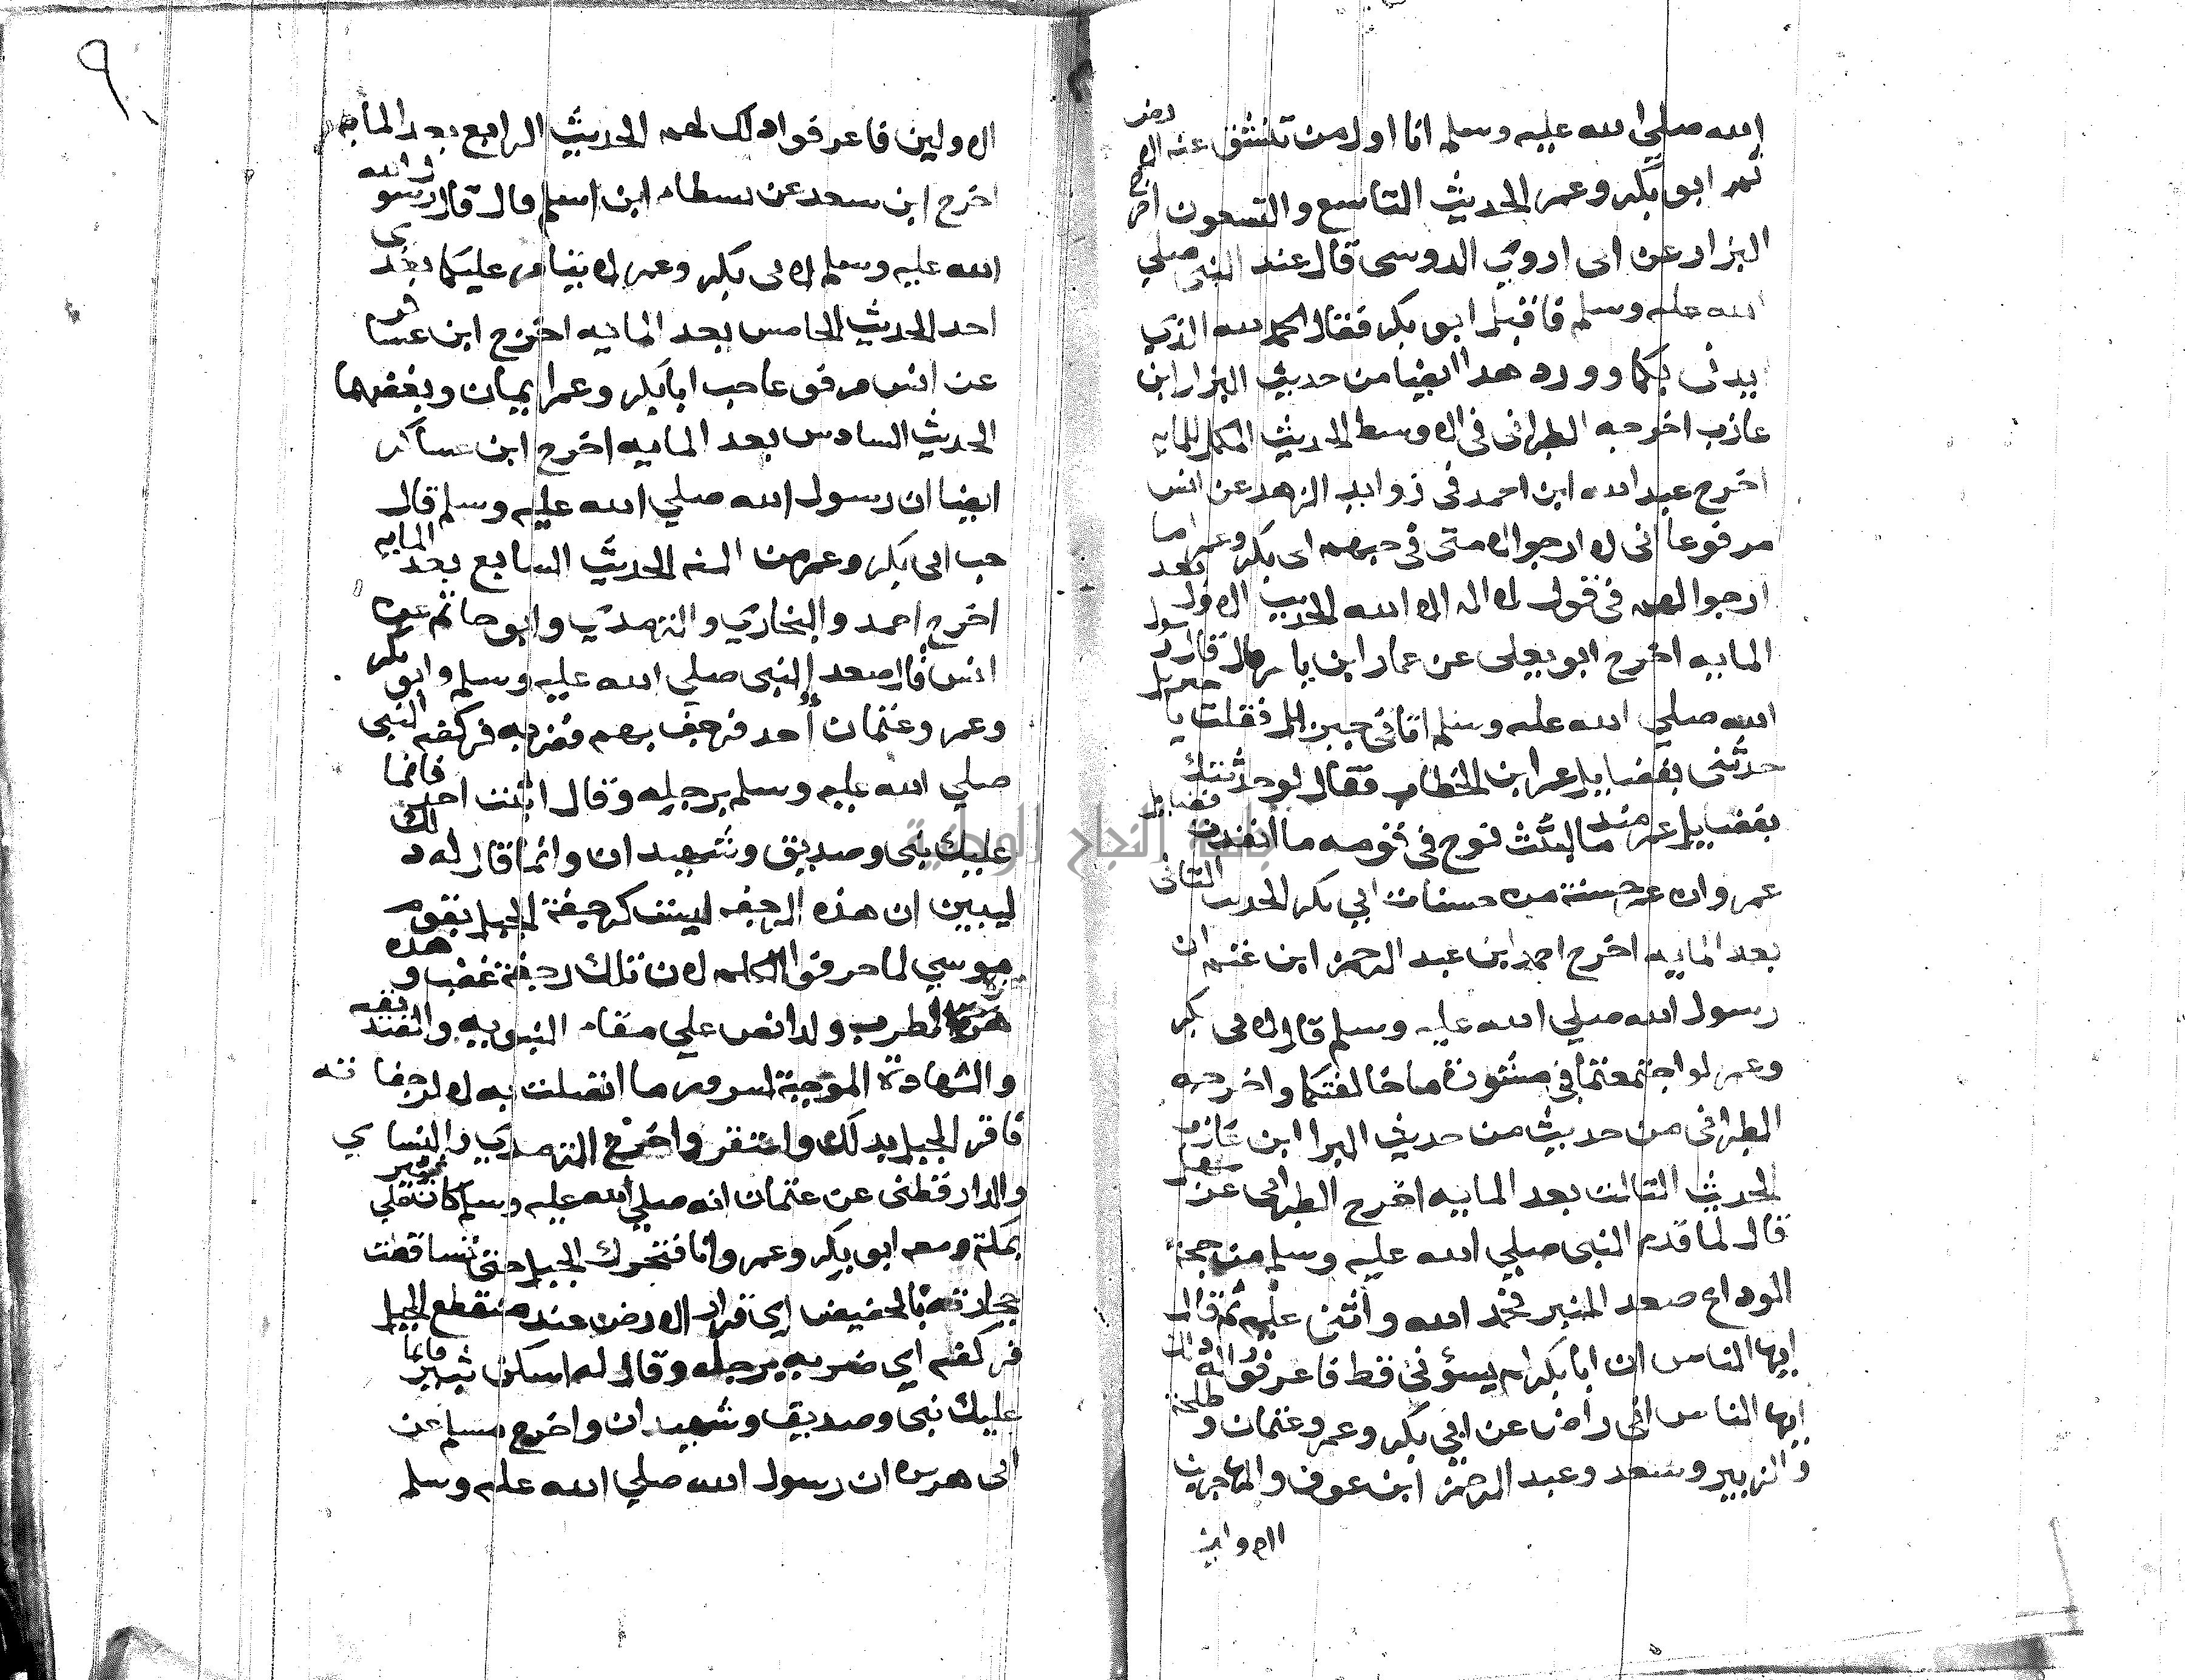 الله صلي الله عليه وسلم انا اول من تنشق عنه الارض
ثم ابو بكر وعمر الحديث التاسع والتسعون اخرج
البزار عن ابى اروي الدوسى قال عند النبى صلي
الله عليه وسلم فاقبل ابو بكر فقال الحمد لله الذي
ايدنى بكما وورد هدا ايضا من حديث البزار ابن
عازب اخرجه الطبرانى فى الاوسط الحديث المكمل للمايه
اخرج عبد الله ابن احمد فى زوايد الزهد عن انس
مرفوعا انى لارجوا لامتى فى حبهم ابى بكر وعمر ما
ارجوا لهم فى قول لا اله الا الله الحديث الاول بعد
المايه اخرج ابو يعلى عن عمار ابن ياسر قال قال رسول
الله صلي الله عليه وسلم اتانى جبريل فقلت يا جبريل
حدثنى بفضايل عمر ابن الخطاب فقال لو حدثتك
بفضايل عمر منذ ما لبث نوح فى قومه ما انفدت فضايل
عمر وان عمر حسنة من حسنات ابي بكر الحديث الثانى
بعد المايه اخرج احمد ابن عبد الرحمن ابن غنم ان
رسول الله صلي الله عليه وسلم قال لابى بكر
وعمر لو اجتمعتما في مشورة ما خالفتكما واخرجه
الطبرانى من حديث من حديث البرا ابن عازب
الحديث الثالث بعد المايه اخرج الطبرانى عن سهل
قال لما قدم النبى صلي الله عليه وسلم من حجة
الوداع صعد المنبر فحمد الله واثنى عليه ثم قال
ايها الناس ان ابا بكر لم يسؤنى قط فاعرفوا له ذلك
ايها الناس انى راض عن ابي بكر وعمر وعثمان و طلحة
والزبير وسعد وعبد الرحمن ابن عوف والمهاجرين
الاولين
٩
الاولين فاعرفوا دلك لهم الحديث الرابع بعد المايه
اخرج ابن سعد عن بسطام ابن اسلم قال قال رسول الله
الله عليه وسلم لابى بكر وعمر لا يتامر عليكما بعدي
احد الحديث الخامس بعد المايه اخرج ابن عساكر
عن انس مرفوعا حب ابا بكر وعمر ايمان وبغضهما
الحديث السادس بعد المايه اخرج ابن عساكر
ايضا ان رسول الله صلي الله عليه وسلم قال
حب ابى بكر وعمر من السنه الحديث السابع بعد المايه
اخرج احمد والبخاري والترمدي وابو حاتم عن
انس قال صعد النبى صلي الله عليه وسلم وابو بكر
وعمر وعثمان أحد فرجف بهم فضربه فركضه النبى
صلي الله عليه وسلم برجله وقال اثبت احد فانما
عليك نبى وصديق وشهيدان وانما قال له دلك
ليبين ان هذه الرجفه ليست كرجفة الجبل بقوم
موسي لما حرفوا الكلم لان تلك رجفة غضب و هده
هزة الطرب ولدا نص علي مقام النبويه والصديقيه
والشهادة الموجبة لسرور ما اتصلت به لا لرجفاته
فاقر الجبل بدلك واستقر واخرج الترمدي والنساي
والدارقطنى عن عثمان انه صلي الله عليه وسلم كان علي ثبير
بمكة ومعه ابو بكر وعمر وانا فتحرك الجبل حتى تساقطت
حجارته بالحضيض اي قرار الارض عند منقطع الجبل
فركضه اي ضربه برجله وقال له اسكن ثبير فانما
عليك نبى وصديق وشهيدان واخرج مسلم عن
ابى هريره ان رسول الله صلي الله عليه وسلم
جامعة النجاح الوطنية